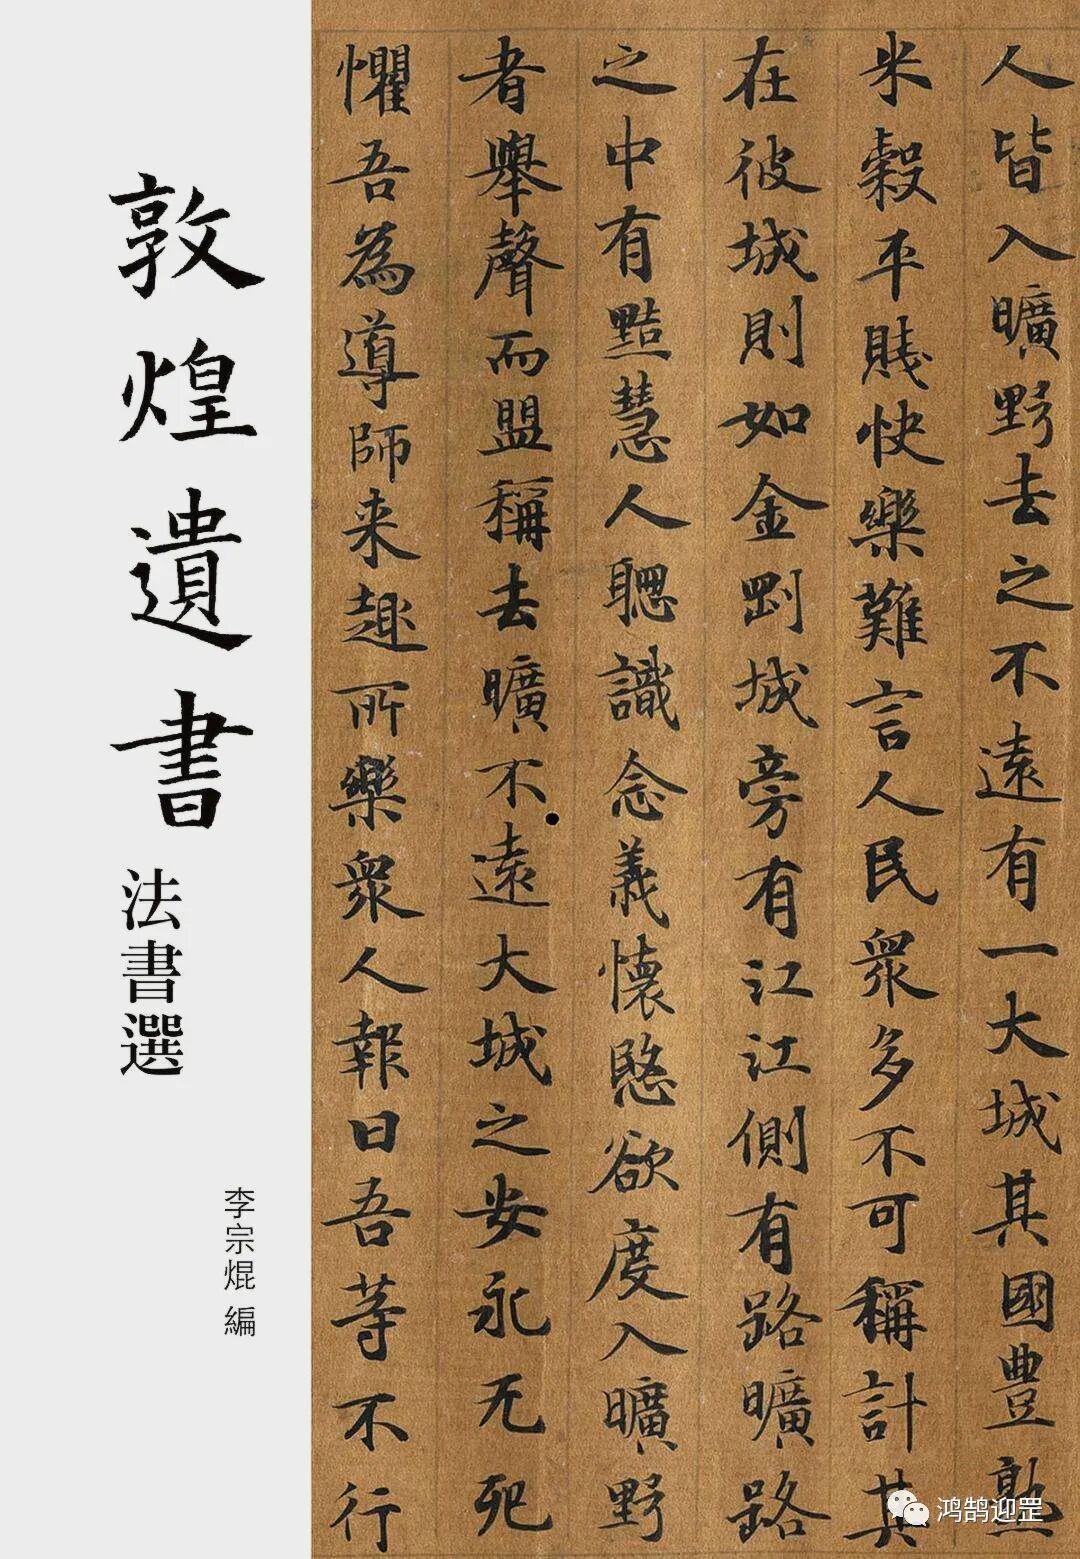 敦煌遺書
法書選
李宗焜 編
人皆入曠野去之不遠有一大城其國豊熟
米穀平賤快樂難言人民衆多不可稱計其
在彼城則如金剛城旁有江江側有路曠路
之中有黠慧人聰識念義懷愍欲度入曠野
者舉聲而盟稱去曠不遠大城之安永无死
懼吾為導師来趣所樂衆人報曰吾等不行
鸿鹄迎罡